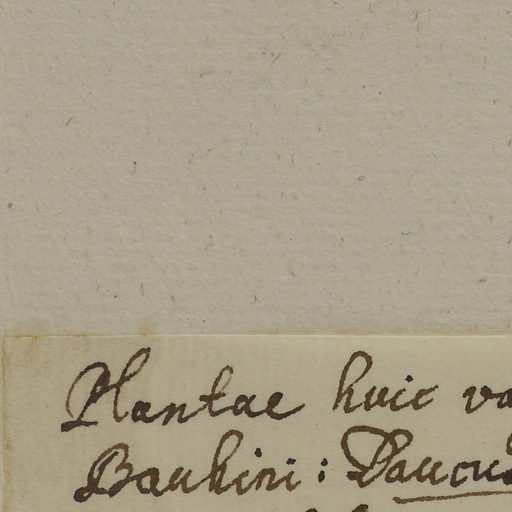 Plantae huic va
Bauhini: Daucus